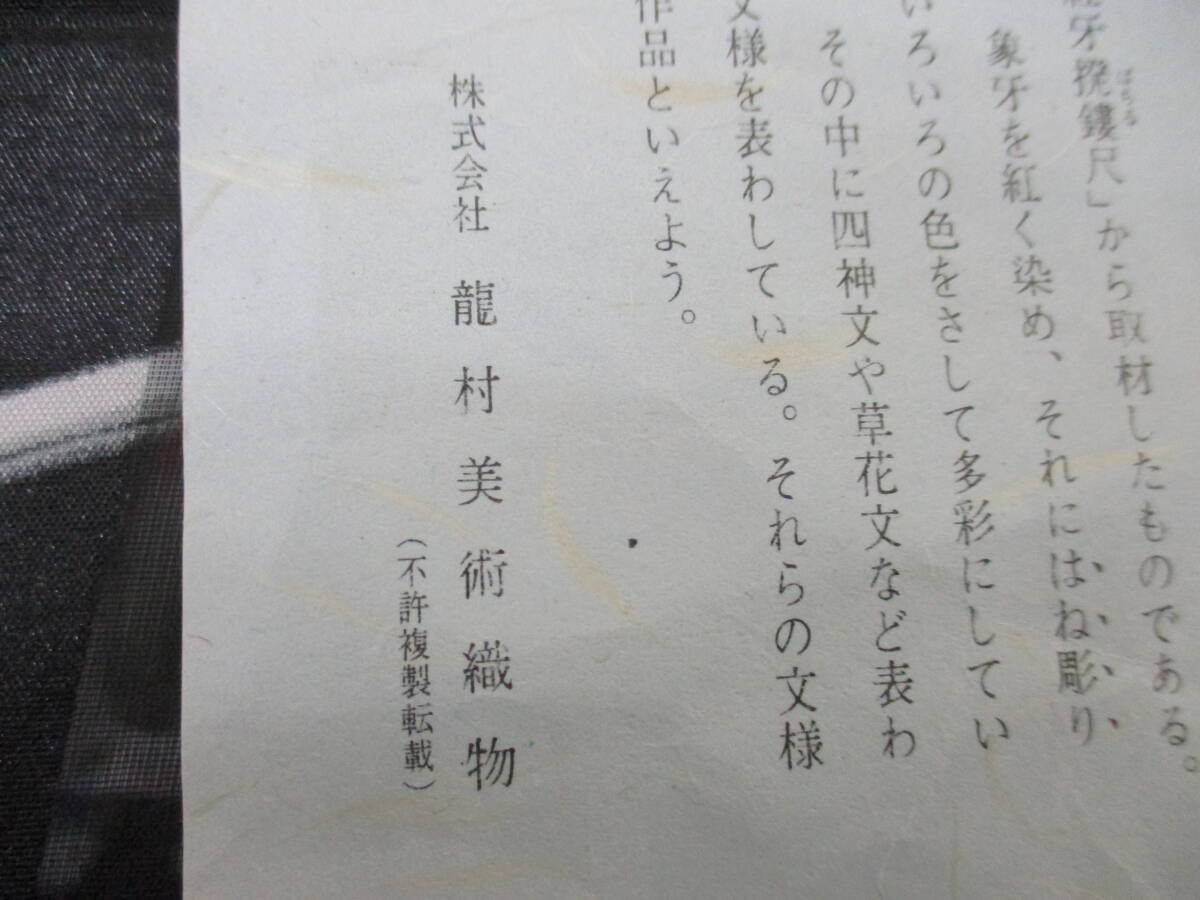 牙撥鏤尺」から取材したものである。
ばちる
象牙を紅く染め、それにはね彫り
いろいろの色をさして多彩にしてい
その中に四神文や草花文など表わ
文様を表わしている。それらの文様
作品といえよう。
株式会社 龍村美術織物
（不許複製転載）